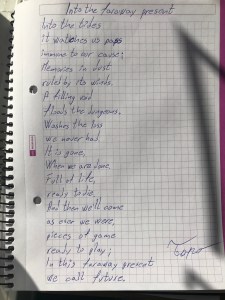 Into the faraway present
Into the tides
it watches us pass
immune to our cause;
Memories in dust
ruled by its winds.
A filling end
floods the dungeons.
Washes the loss
we never had.
It is gone.
When we are done.
Full of life,
ready to die.
But then we'll come
as ever we were,
pieces of game
ready to play;
In this faraway present
we call future.